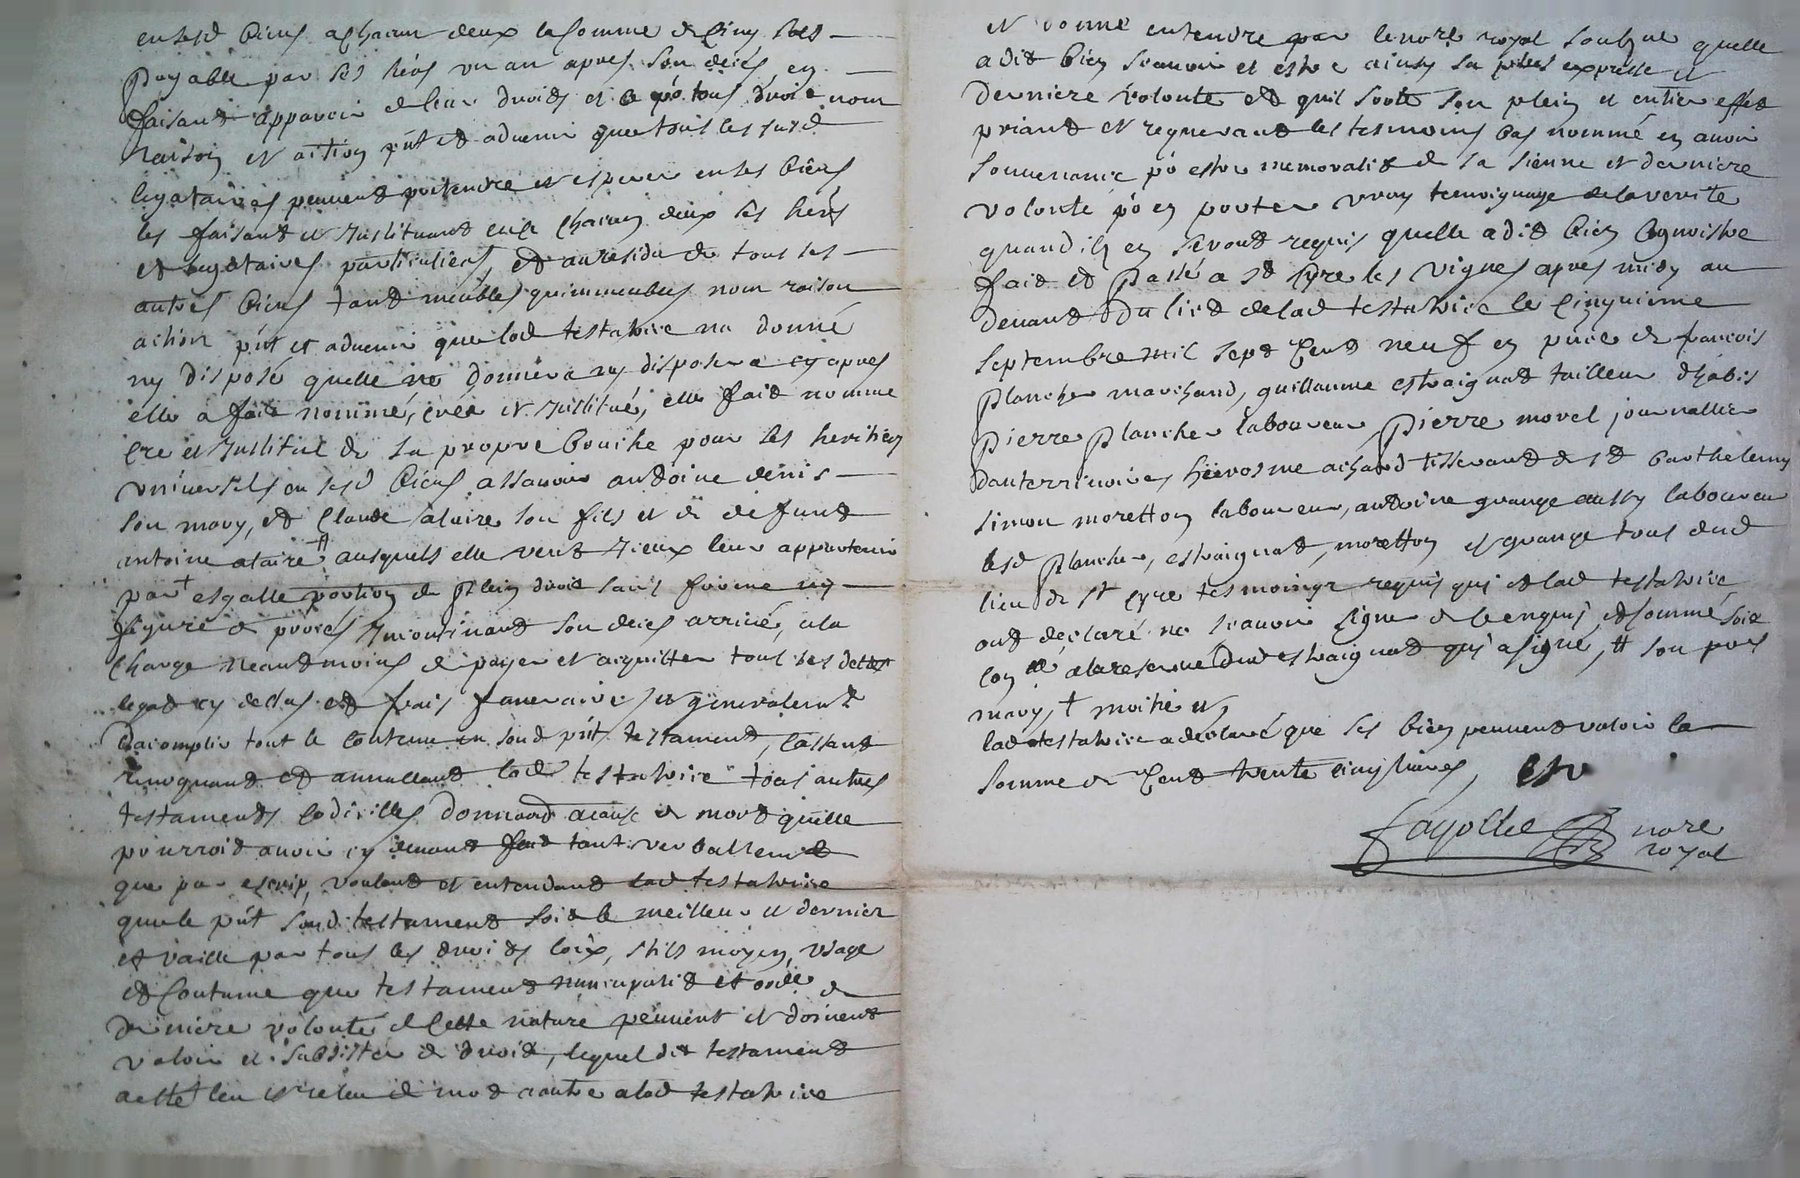 en sesd biens a chacun deux la somme de cinq sols
payable par ses hérs un an apres son deces en
faisant apparoir de leur droits et ce po tous droit nom
raison et action pñt et aduenir que tous les susd
legataires peuuent pretendre et esperer en ses biens
les faisant et instituant eux chacun deux ses hers
et legataires particuliers, et au residu de tous ses
autres biens tant meubles quimmeubles nom raison
action pñt et aduenir que lad testatrice na donné
ny disposé quelle ne donnera ny disposera cy apres
elle a fait nommé, créé et institué, elle fait nomme
cre et institue de sa propre bouche pour ses heritiers
vniuersels en sesd biens assauoir antoine denis
son mary, et Claude alaire son fils et de defunt
antoine alaire # ausquels elle veut iceux leur appartenir
par † esgalle portion de plein droit sans forme ny
figure de proces incontinant son deces arriué, a la
charge neantmoins de payer et acquitter tous ses dettes
legat cy dessus et frais funeraire, et generalemt
dacomplir tout le contenu en sond pñt testament, cassant
reuoquant et annullant lad testatrice tous autres
testaments codicilles donnaõn a cause de mort quelle
pourroit auoir cy deuant fait tant verballemt
que par escrip, voulant et entendant lad testatrice
que le pñt sond testament soit le meilleur et dernier
et vaille par tous les droits loix, stils moyen, vsage
et coutume que testament nuncupatif et ordce de
derniere volonte de cette nature peuuent et doiuent
valoir et subsister de droit, lequel dit testament
a esté leu et releu de mot a autre a lad testatrice
et donné entendre par le nore royal soubzne quelle
a dit bien scauoir et estre ainsy sa plus expresse et
derniere volonte et quil sorte son plein et entier effet
priant et requerant les tesmoins bas nommé en auoir
souuenance po estre memoratif de sa sienne et derniere
volonté po en porter vray temoignage de la verite
quand ils en seront requis quelle a dit bien cognoistre
fait et passé a st Cyre les vignes apres midy au
deuant du lict de lad testatrice le cinquieme
septembre mil sept cent neuf en pnce de francois
plancher marchand, guillaume estraignat tailleur dhabis
pierre plancher laboureur, pierre morel journallier
dauterriuoires hierosme achard tisserant de st barthelemy
simon moretton laboureur, antoine grange aussy laboureur
lesd plancher, estraignat, moretton et grange tous dud
lieu de st cyre tesmoings requis qui et lad testatrice
ont declaré ne scauoir signer de ce enquis et sommé soit
lon a la reserue dud estraignat qui a signé, # son pos
mary, † moitie et,
lad testatrice a declaré que ses bien peuuent valoir la
somme de cent trente cinq liures,
fayolle nore
royal